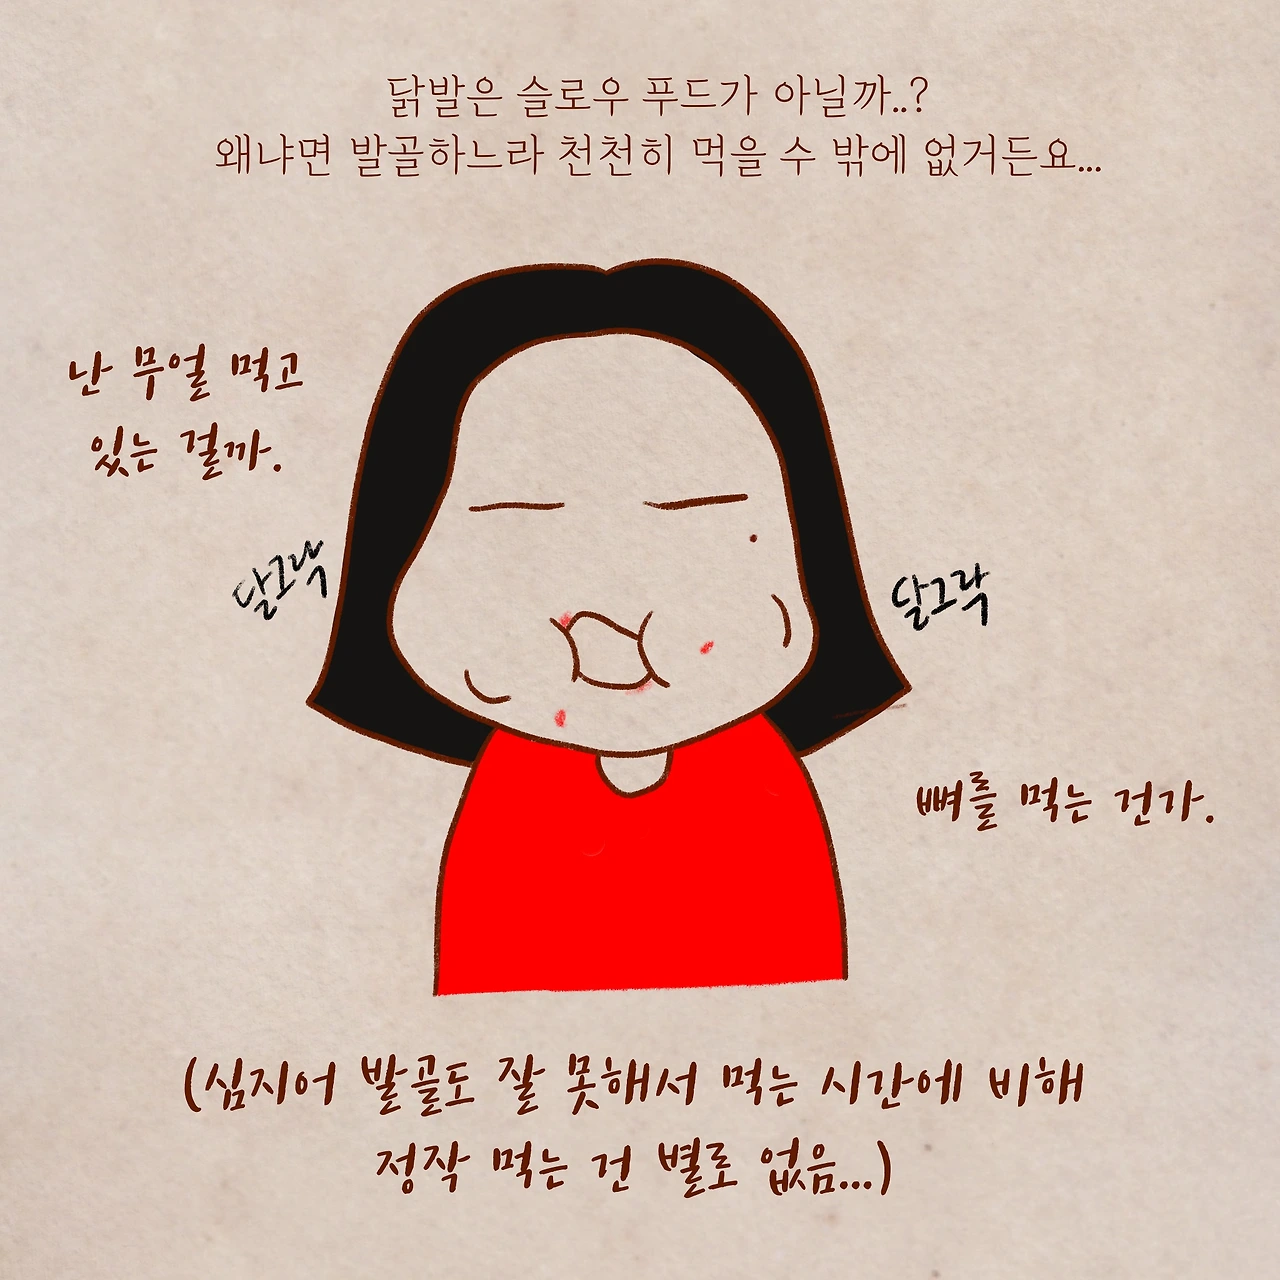 닭발은 슬로우 푸드가 아닐까..?
왜냐면 발골하느라 천천히 먹을 수 밖에 없거든요...
난 무얼 먹고
있는 걸까.
달그락
달그락
뼈를 먹는 건가.
(심지어 발골도 잘 못해서 먹는 시간에 비해
정작 먹는 건 별로 없음...)